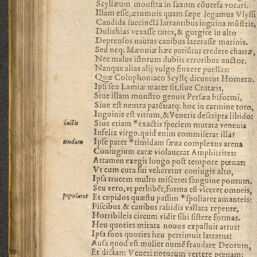 Scyllæum monstra in saxum conuersa vocari.
Illam esse, ærumnis quam sæpe legamus Vlyssi
Candida succincta latrantibus inguina monstris,
Dulichias vexasse rates, & gurgite in alto
Deprensos nautas canibus lacerasse marinis.
Sed neq; Mæoniæ hæc patiuntur credere chartæ,
Nec malus istorum dubiis erroribus auctor.
Nanque alias alij vulgo finxere puellas:
Quæ Colophoniaco Scyllę dicuntur Homero.
Ipsi seu Lamiæ mater sit, siue Cratæis,
Siue illam monstro genuit Persæa biformi,
Siue est neutra parēsatq; hoc in carmine toto,
Inguinis est vitium, & Veneris descripta libido:
iactis Siue etiam *exactis speciem mutata venenis
Infelix virgo. quid enim commiserat illa?
nudam Ipse pater *timidam sæua complexus arena
Coniugium caræ violauerat Amphitrites:
Attamen exegit longo post tempore pœnas:
Vt cum cura sui veheretur coniugis alto,
Ipsa trucem multo misceret sanguine pontum.
Seu vero, vt perhibēt, forma est viceret omneis,
populares Et cupidos quæstu passim *spoliaret amanteis:
Piscibus & canibus rabidis vallata repente,
Horribileis circum vidit sibi sistere formas.
Heu quoties mirata nouos expalluit artus!
Ipsa suos quoties heu pertimuit latratus!
Ausa quod est mulier numē fraudare Deorum,
Et dictam Veneri votorum vertere pœnam: